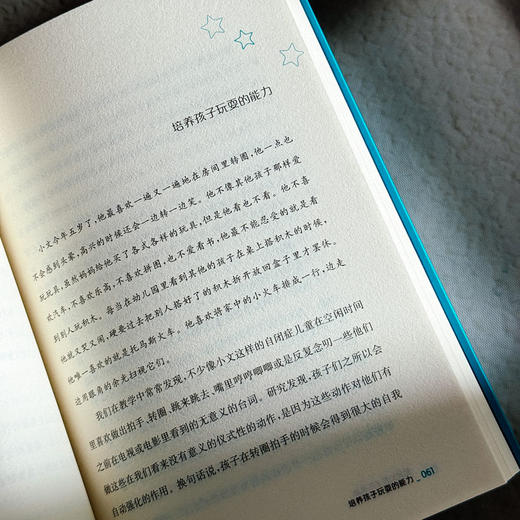 培养孩子玩耍的能力
小文今年五岁了,他最喜欢一遍又一遍地在房间里转圈,他一点也
不会感到头晕,高兴的时候还会一边转一边笑。他不像其他孩子那样爱
玩玩具,虽然妈妈给他买了各式各样的玩具,但是他看也不看。他不喜
欢汽车,不喜欢乐高,不喜欢拼图,也不爱看书,他最不能忍受的就是看
到别人玩积木。每当在幼儿园里看到其他的孩子在桌上搭积木的时候,
他就又哭又闹,硬要过去把别人搭好了的积木拆开放回盒子里才罢休。
他唯一喜欢的就是托马斯火车。他喜欢将家中的小火车排成一行,边走
边用眼角的余光扫视它们。
我们在教学中常常发现,不少像小文这样的自闭症儿童在空闲时间
里喜欢做出拍手、转圈、跳来跳去、嘴里哼哼唧唧或是反复念叨一些他们
之前在电视或电影里看到的无意义的台词。研究发现,孩子们之所以会
做这些在我们看来没有意义的仪式性的动作,是因为这些动作对他们有
自动强化的作用。换句话说,孩子在转圈拍手的时候会得到很大的自我
培养孩子玩耍的能力 061